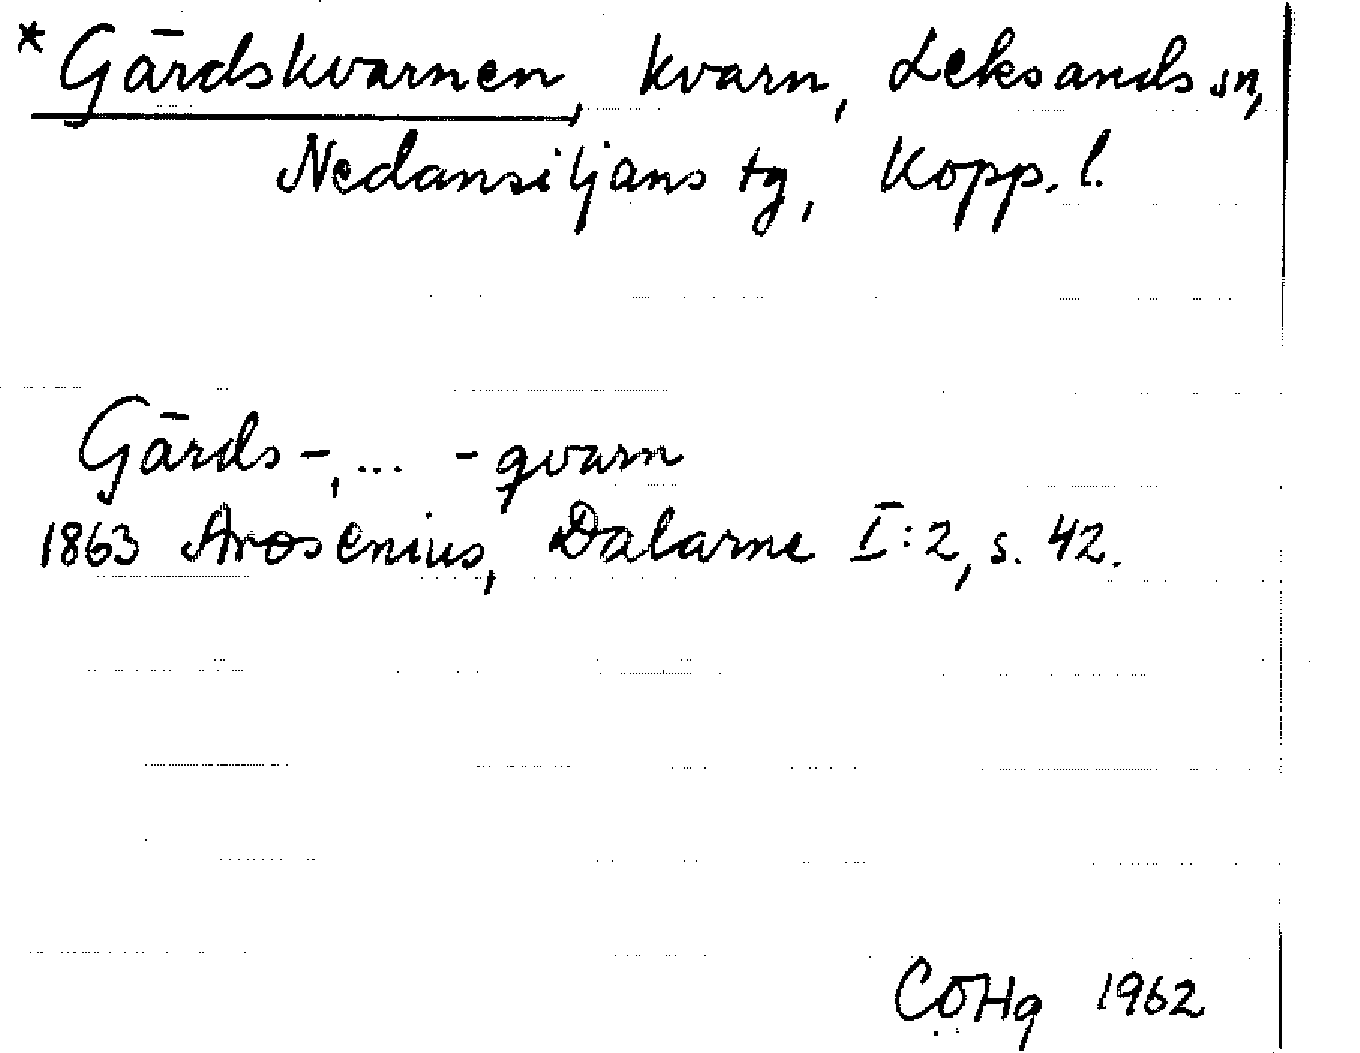 *Gärdskvarnen, kvarn, Leksands sn,
Nedansiljans tg, Kopp. l.
Gärds-, ... -qvarn
1863 Arosenius, Dalarne I:2, s. 42.
COHg 1962